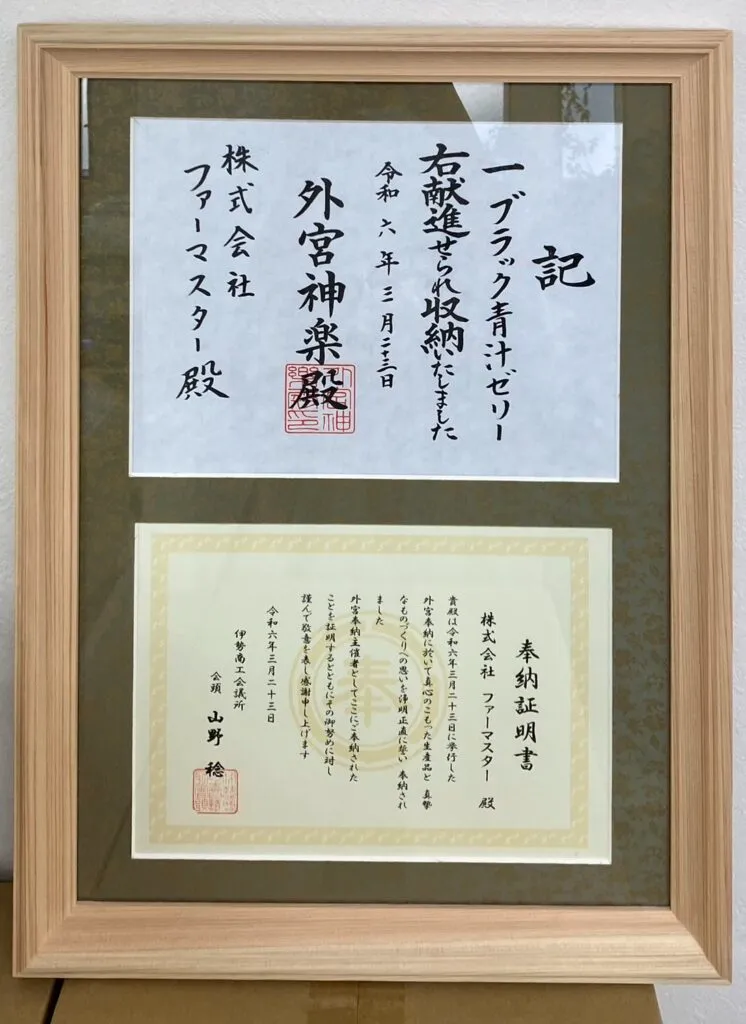 記
一 ブラック青汁ゼリー
右献進せられ収納いたしました
令和六年三月二十三日
外宮神楽殿
株式会社
ファーマスター殿
奉納証明書
株式会社 ファーマスター 殿
貴殿は令和六年三月二十三日に挙行した
外宮奉納に於いて真心のこもった生産品と 真摯
なものづくりへの思いを浄明正直に誓い 奉納され
ました
外宮奉納主催者としてここにご奉納された
ことを証明するとともにその御努めに対し
謹んで敬意を表し感謝申し上げます
令和六年三月二十三日
伊勢商工会議所
会頭 山野 稔
奉